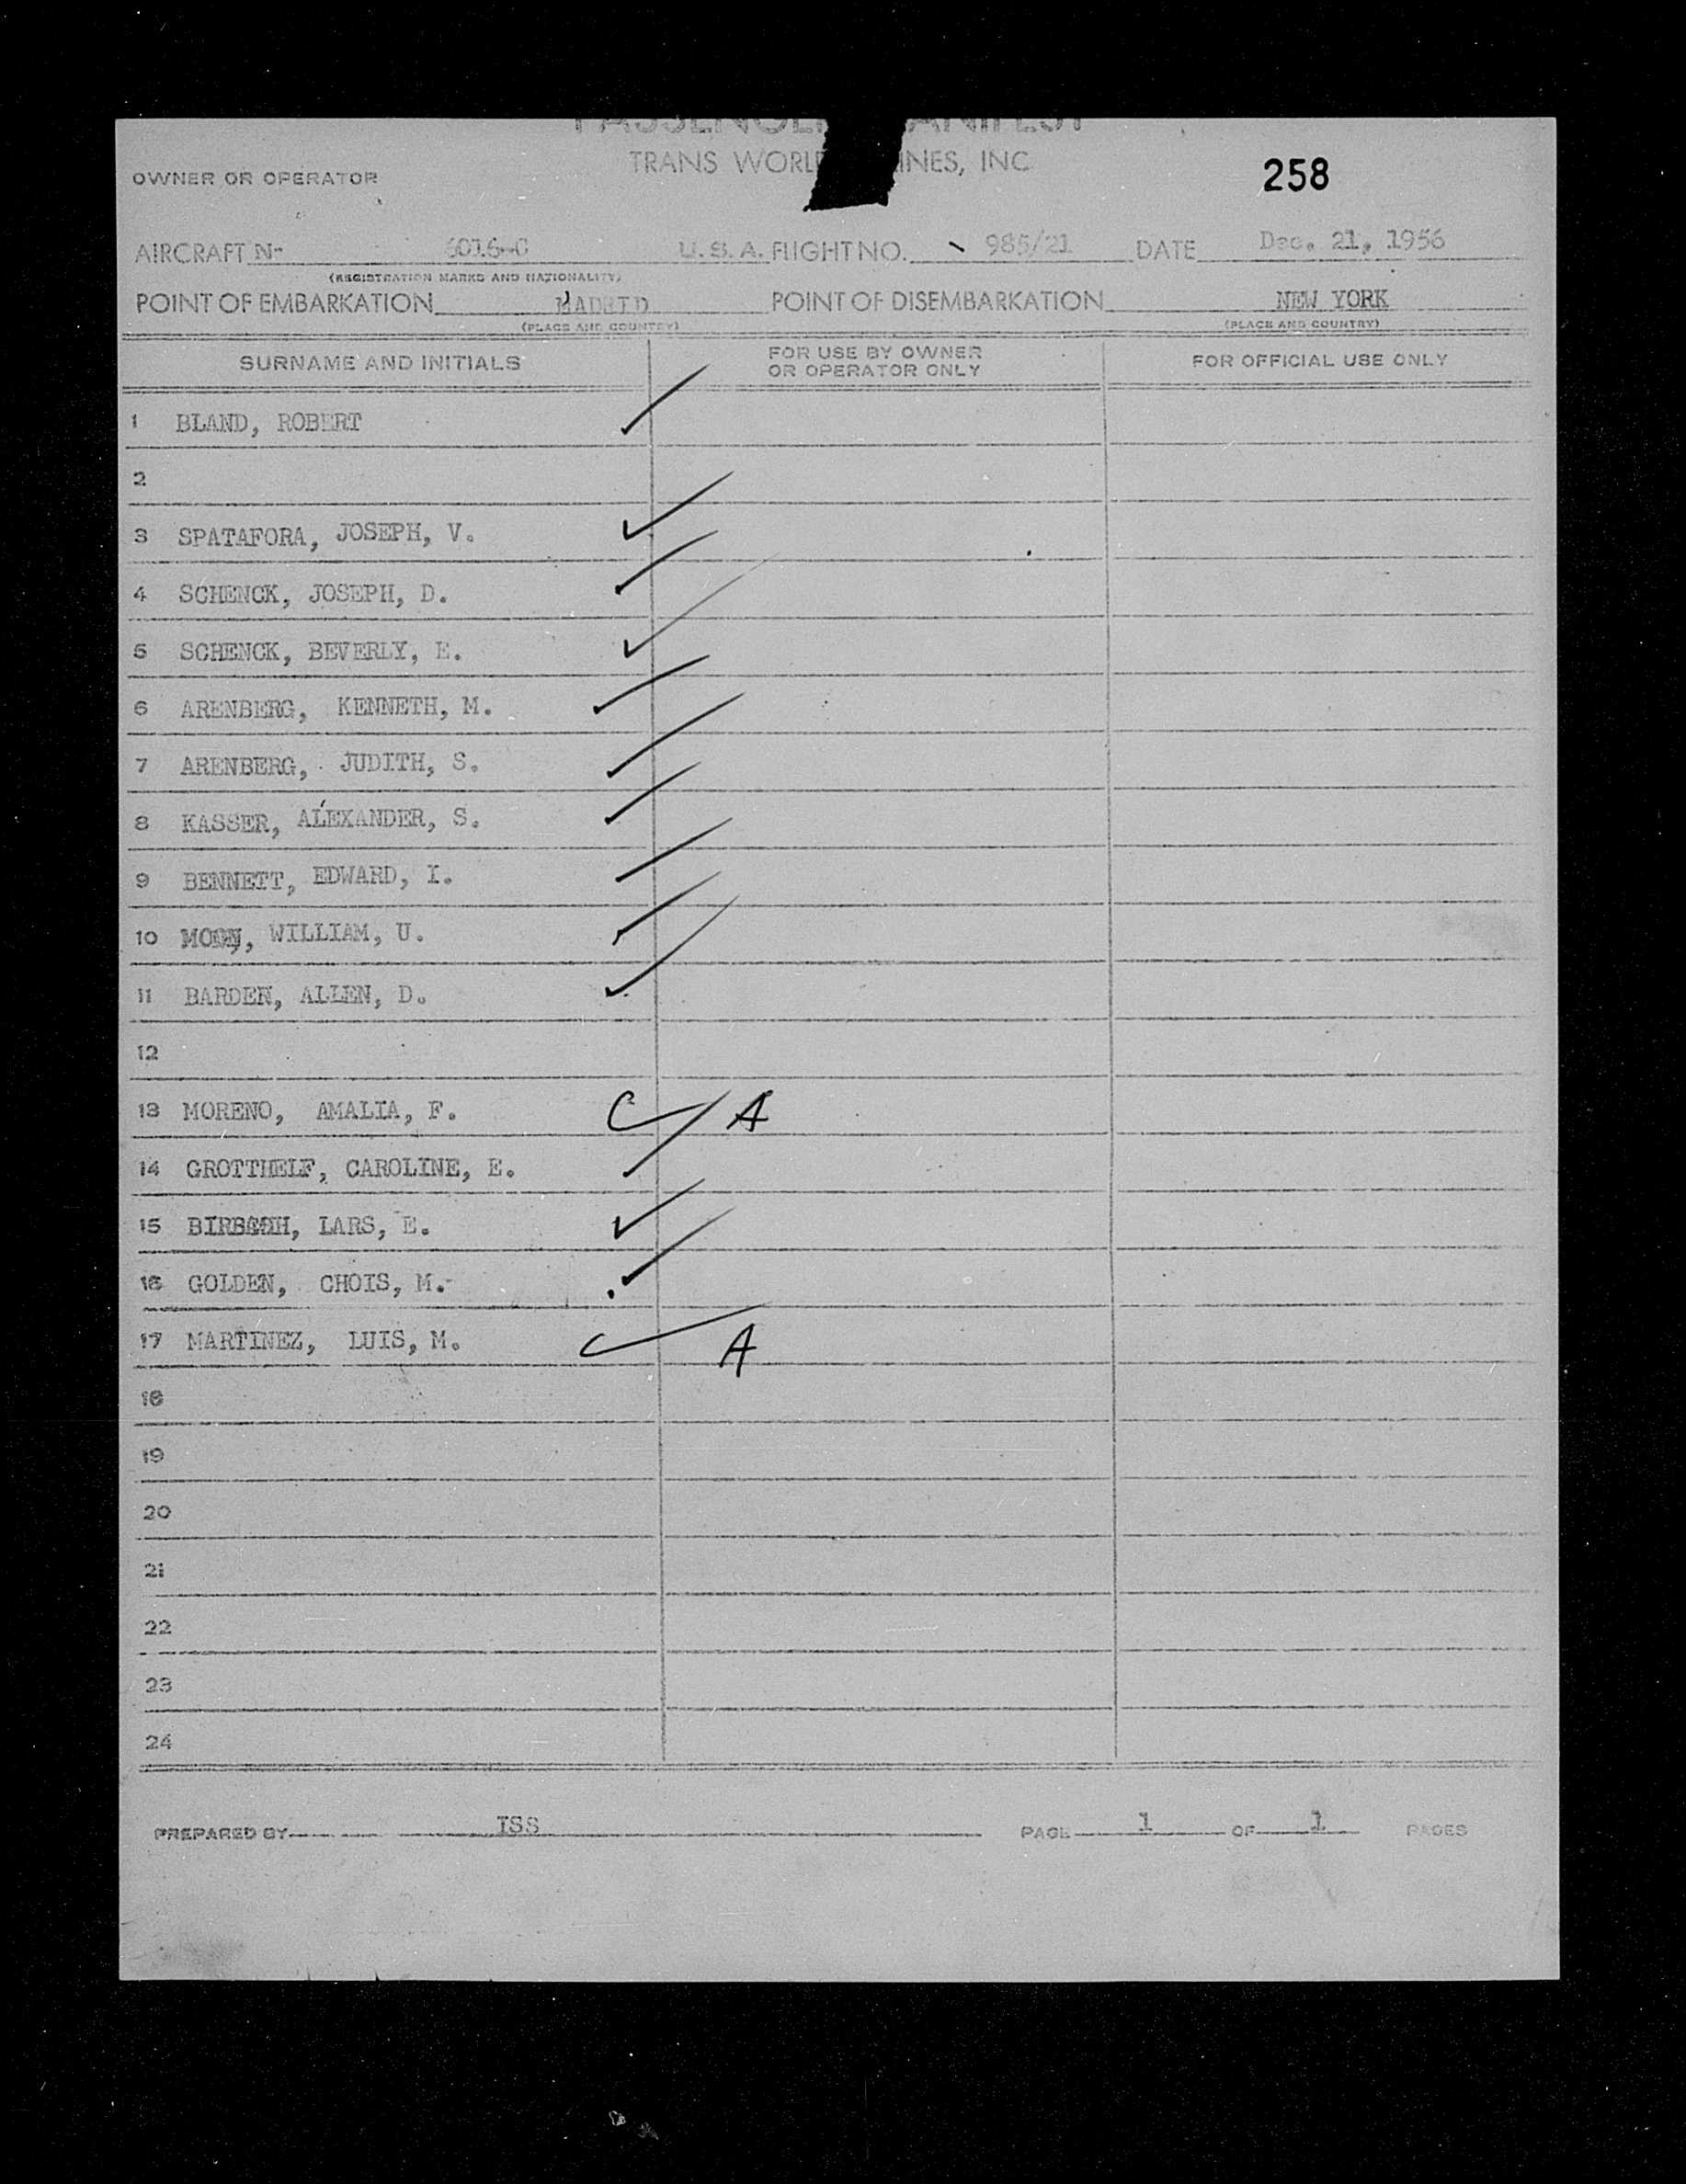 PASSENGER MANIFEST
TRANS WORLD AIRLINES, INC
258
OWNER OR OPERATOR
AIRCRAFT N- 6016-C U.S.A. FLIGHT NO. 985/21 DATE Dec. 21, 1956
(REGISTRATION MARKS AND NATIONALITY)
POINT OF EMBARKATION MADRID POINT OF DISEMBARKATION NEW YORK
(PLACE AND COUNTRY) (PLACE AND COUNTRY)
SURNAME AND INITIALS FOR USE BY OWNER OR OPERATOR ONLY FOR OFFICIAL USE ONLY
1 BLAND, ROBERT
2
3 SPATAFORA, JOSEPH, V.
4 SCHENCK, JOSEPH, D.
5 SCHENCK, BEVERLY, E.
6 ARENBERG, KENNETH, M.
7 ARENBERG, JUDITH, S.
8 KASSER, ALEXANDER, S.
9 BENNETT, EDWARD, I.
10 WILLIAM, U.
11 BARDEN, ALLEN, D.
12
13 MORENO, AMALIA, F. A
14 GROTTHELF, CAROLINE, E.
15 LARS, E.
16 GOLDEN, CHOIS, M.
17 MARTINEZ, LUIS, M. A
18
19
20
21
22
23
24
PREPARED BY ISS PAGE 1 OF 1 PAGES